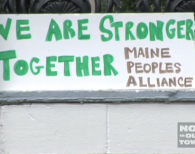 WE ARE STRONGER
TOGETHER
MAINE
PEOPLES
ALLIANCE
NO